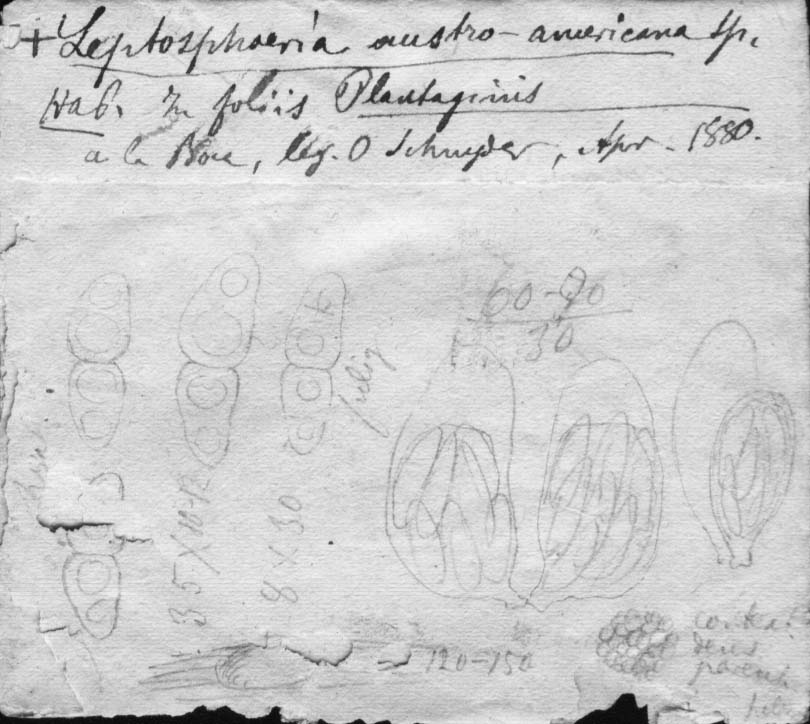 + Leptosphaeria austro-americana Sp.
Hab. In foliis Plantaginis
a la Boca, leg. O Schnyder, Apr. 1880.
60-90
30
fulig
35 X 10-12
8 X 30
120-150
context
dens
parench